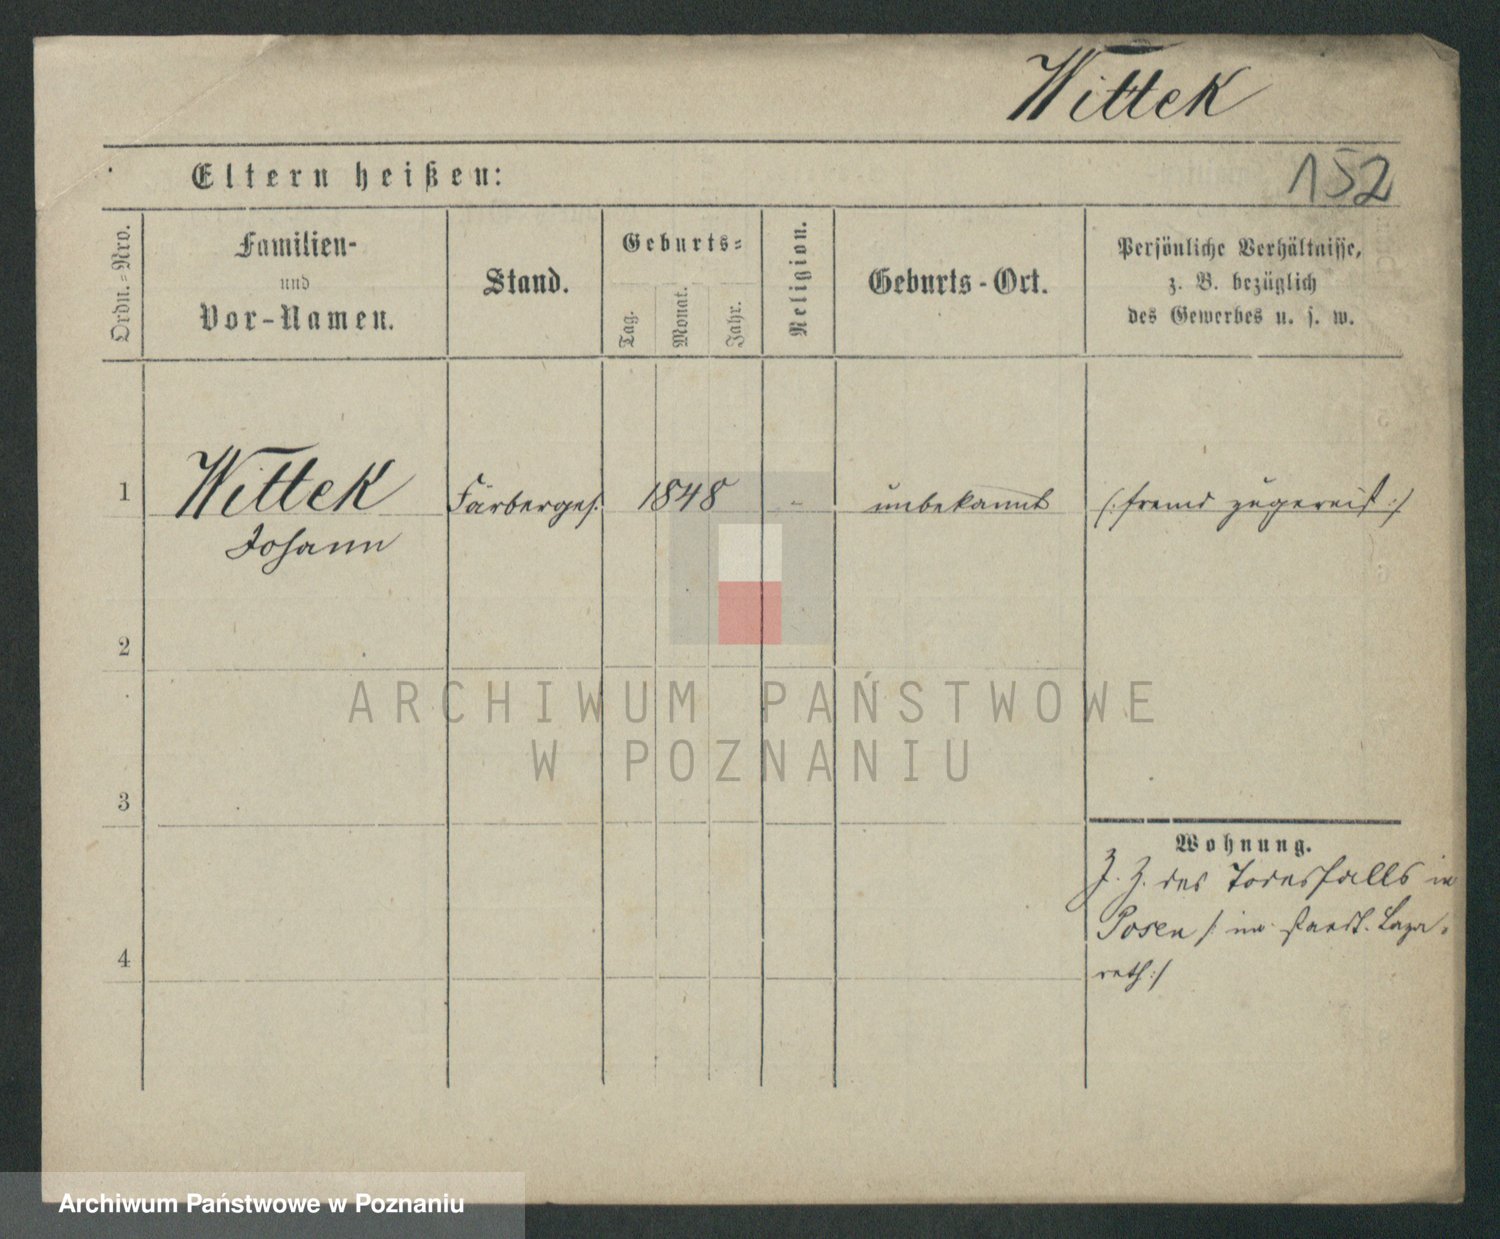 Wittek
Eltern heißen:
152
Ordn.-Nro.
Familien-
und
Vor-Namen.
Stand.
Geburts-
Tag.
Monat.
Jahr.
Religion.
Geburts-Ort.
Persönliche Verhältnisse,
z. B. bezüglich
des Gewerbes u. s. w.
1
Wittek
Johann
Färberges.
1848
-
unbekannt
(: fremd zugereist :)
2
ARCHIWUM PAŃSTWOWE
W POZNANIU
3
Wohnung.
Z. Z. des Todesfalls in
Posen /: im staedt. Laza-
reth :/
4
Archiwum Państwowe w Poznaniu